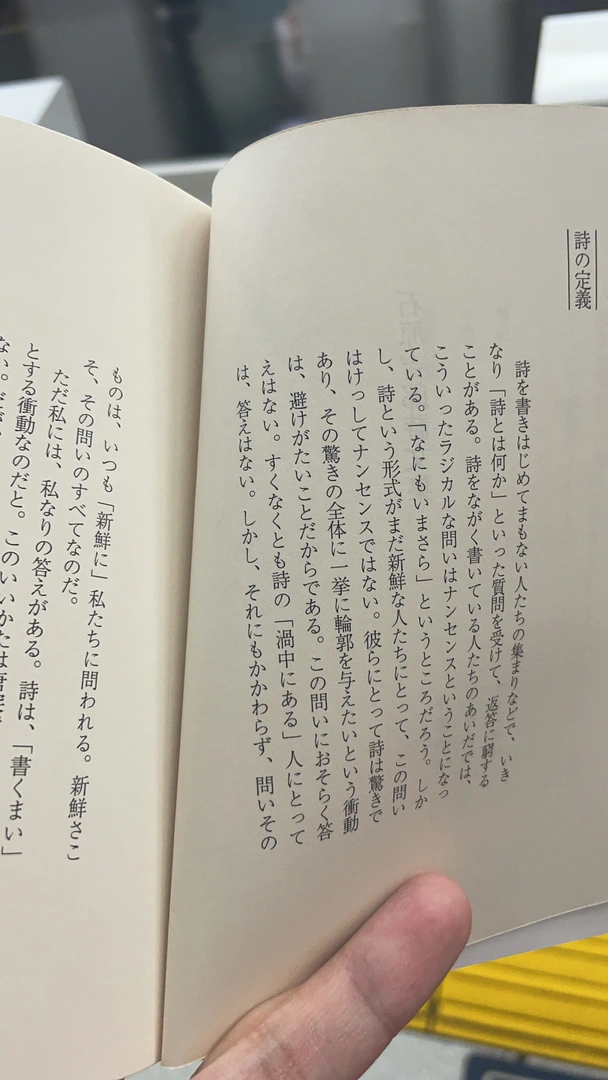 詩の定義
詩を書きはじめてまもない人たちの集まりなどで、いき
なり「詩とは何か」といった質問を受けて、返答に窮する
ことがある。詩をながく書いている人たちのあいだでは、
こういったラジカルな問いはナンセンスということになっ
ている。「なにもいまさら」というところだろう。しか
し、詩という形式がまだ新鮮な人たちにとって、この問い
はけっしてナンセンスではない。彼らにとって詩は驚きで
あり、その驚きの全体に一挙に輪郭を与えたいという衝動
は、避けがたいことだからである。この問いにおそらく答
えはない。すくなくとも詩の「渦中にある」人にとって
は、答えはない。しかし、それにもかかわらず、問いその
ものは、いつも「新鮮に」私たちに問われる。新鮮さこ
そ、その問いのすべてなのだ。
ただ私には、私なりの答えがある。詩は、「書くまい」
とする衝動なのだと。このいいかたは
ない。